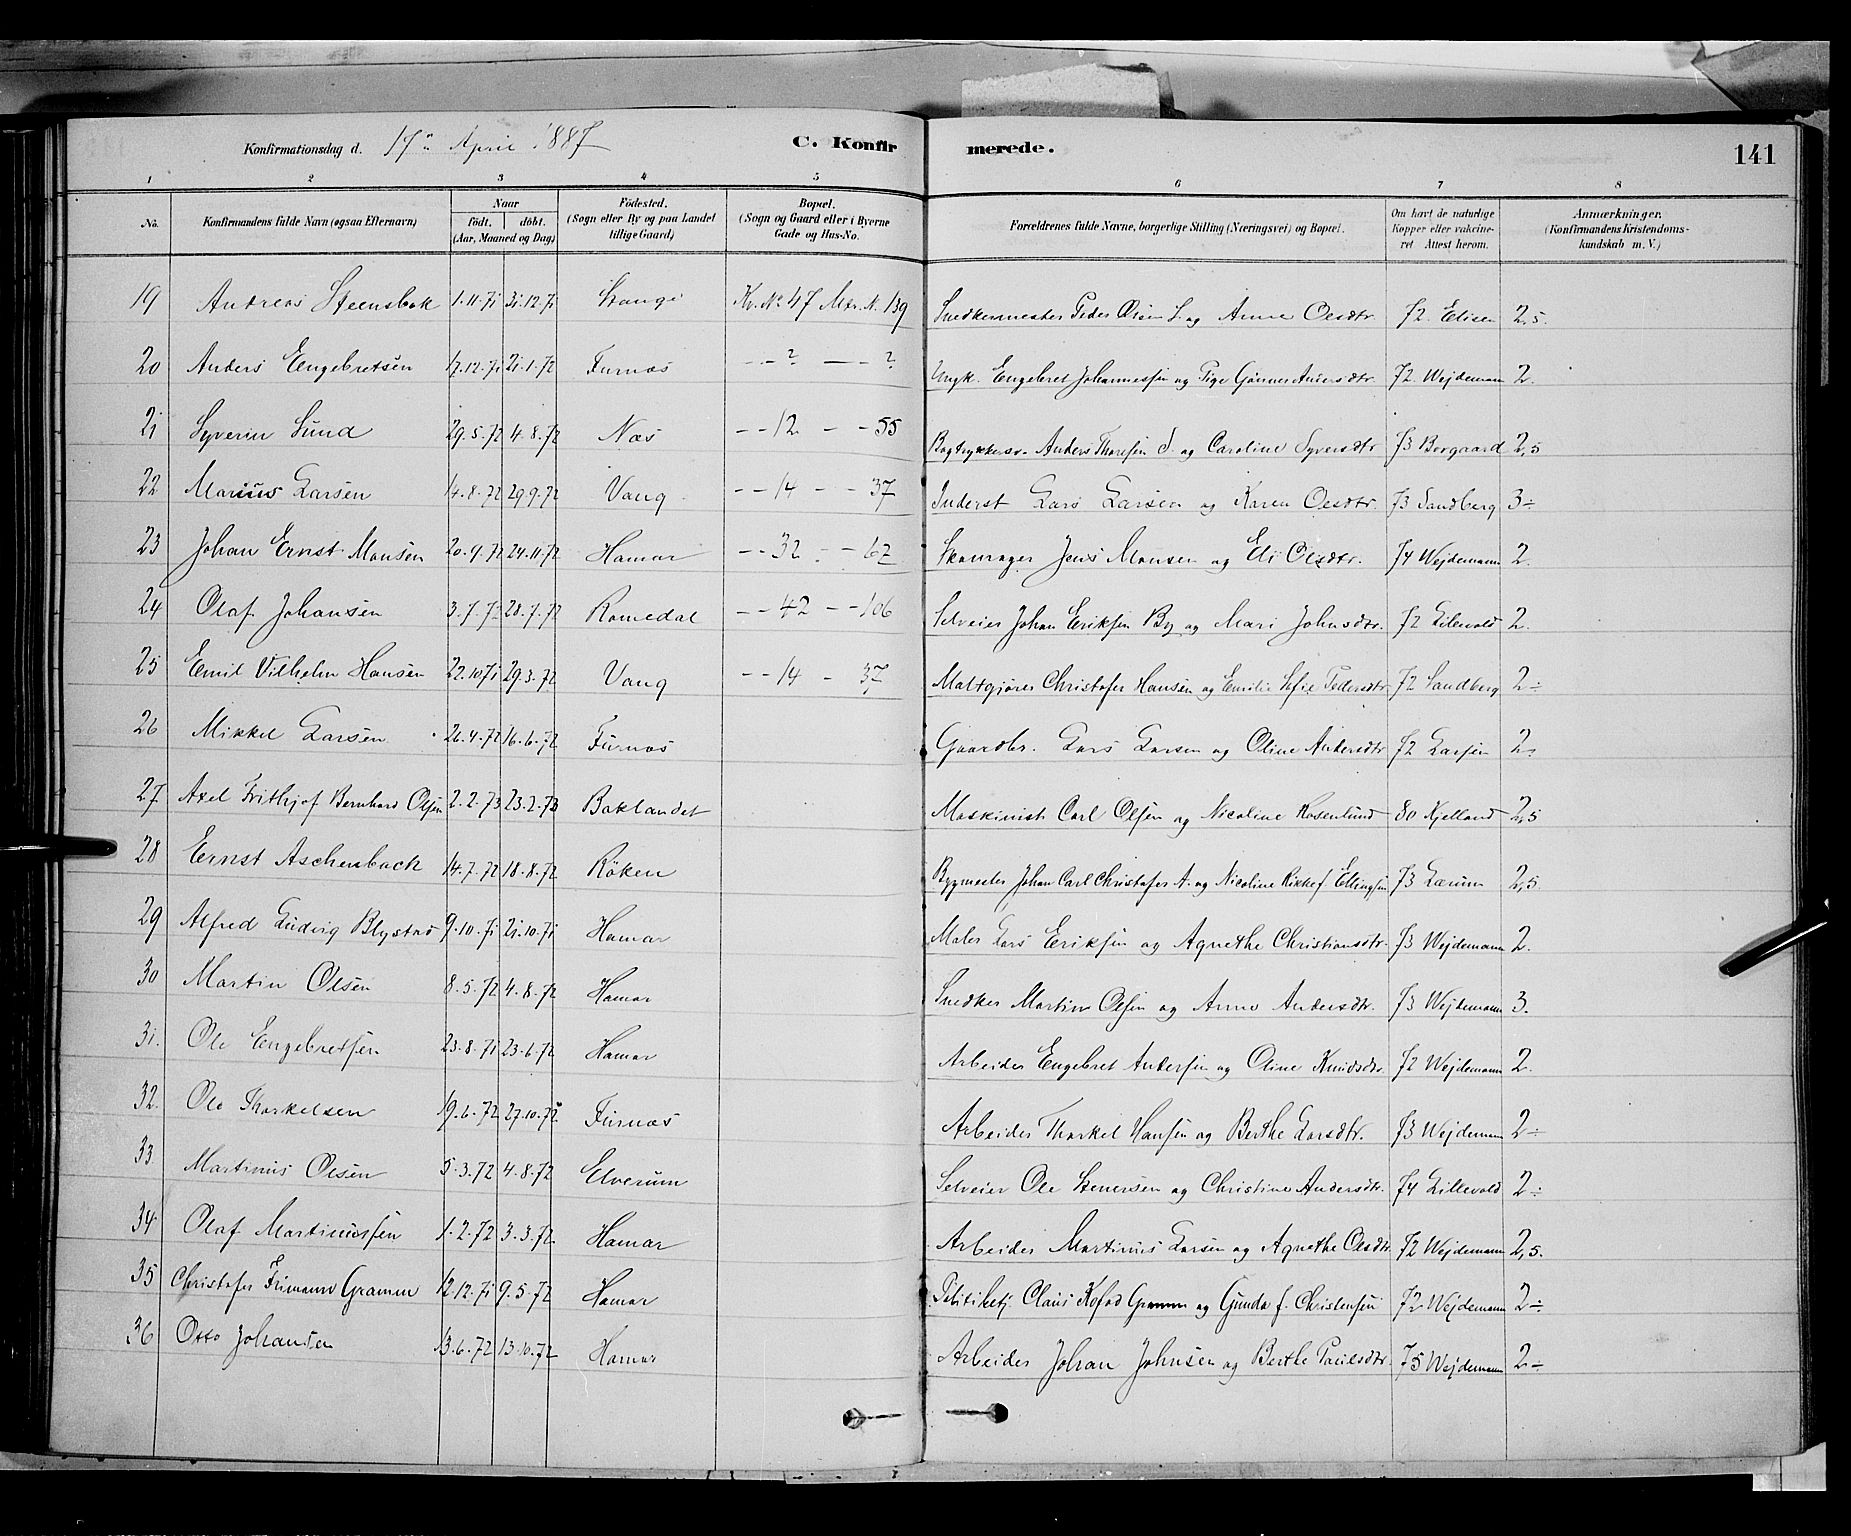 Konfirmationsdag d. 17de April 1887 C. Konfirmerede. 141
1 2 3 4 5 6 7 8
No. Konfirmandens fulde Navn (ogsaa Efternavn) Naar født. døbt. (Aar, Maaned og Dag) Fødested. (Sogn eller By og paa Landet tillige Gaard) Bopæl. (Sogn og Gaard eller i Byerne Gade og Hus-No. Forældrenes fulde Navne, borgerlige Stilling (Næringsvei) og Bopæl. Om havt de naturlige Kopper eller vakcineret Attest herom. Anmærkninger. (Konfirmandens Kristendomskundskab m. V.)
19 Andreas Steensbak 1.11.71 31.12.71 Stange Kv. No 47 Mtr. N. 139 Snedkermester Peder Olsen S. og Anne Olsdtr. 72. Elisen 2,5.
20 Anders Engebretsen 17.12.71 21.1.72 Furnæs - - ? - - ? Ungk. Engebret Johannessen og Pige Gunner Andersdtr. 72. Wejdemann 2.
21 Syverin Lund 29.5.72 4.8.72 Næs - - 12 - - 55 Bogtrykkersv. Anders Thoresen S. og Caroline Syversdtr 73 Borgaard 2,5
22 Marius Larsen 14.8.72 29.9.72 Vang - - 14 - - 37 Inderst Lars Larsen og Karen Olsdtr. 73 Sandberg 3÷
23 Johan Ernst Monsen 20.9.72 24.11.72 Hamar - - 32 - - 62 Skomager Jens Monsen og Eli Olsdtr. 74 Wejdemann 2.
24 Olaf Johansen 3.7.72 28.7.72 Romedal - - 42 - - 106 Selveier Johan Eriksen By og Mari Johnsdtr. 72 Lilevold 2.
25 Emil Vilhelm Hansen 22.10.71 29.3.72 Vang - - 14 - 37 Maltgjører Christofer Hansen og Emilie Sofie Pedersdtr 72 Sandberg 2÷
26 Mikkel Larsen 26.4.72 16.6.72 Furnæs Gaardbr. Lars Larsen og Oline Andersdtr 72 Larsen 2÷
27 Axel Frithjof Bernhard Olsen 2.2.73 23.2.73 Baklandet Maskinist Carl Olsen og Nicoline Rosenlund 80 Kjelland 2,5
28 Ernst Aschenbach 14.7.72 18.8.72 Røken Bygmester Johan Carl Christofer A. og Nicoline Rikke f. Ellingsen 73 Lærum 2,5.
29 Alfred Ludvig Blystad 9.10.71 21.10.71 Hamar Maler Lars Eriksen og Agnethe Christiansdtr. 73 Wejdemann 2.
30 Martin Olsen 8.5.72 4.8.72 Hamar Snedker Martin Olsen og Anne Andersdtr. 73 Wejdemann 3.
31. Ole Engebretsen 23.8.71 23.6.72 Hamar Arbeider Engebret Andersen og Oline Knudsdtr. 72 Wejdemann 2.
32. Ole Thorkelsen 19.6.72 27.10.72 Furnæs Arbeider Thorkel Hansen og Berthe Larsdtr. 73 Wejdemann 2÷
33 Martinus Olsen 5.3.72 4.8.72 Elverum Selveier Ole Stenersen og Christine Andersdtr. 74 Lillevold 2÷
34 Olaf Martinussen 1.2.72 3.3.72 Hamar Arbeider Martinus Larsen og Agnethe Olsdtr 72 Wejdemann 2,5.
35 Christofer Frimann Gramm 12.12.71 9.5.72 Hamar Politibetj. Claus Kofod Gramm og Gunda f. Christensen 72 Wejdemann 2÷
36 Otto Johansen 13.6.72 13.10.72 Hamar Arbeider Johan Johnsen og Berthe Paulsdtr. 75 Wejdemann 2÷